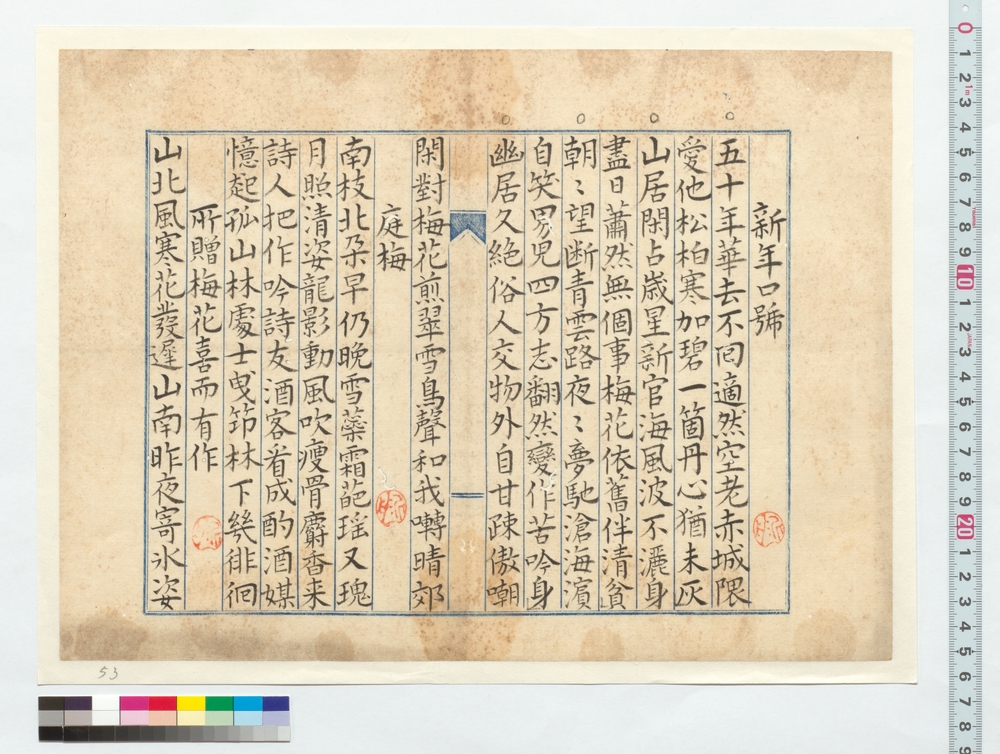 新年口號
五十年華去不囘適然空老赤城隈
愛他松柏寒加碧一箇丹心猶未灰
山居閑占歳星新官海風波不灑身
盡日蕭然無個事梅花依舊伴清貧
朝〻望断青雲路夜〻夢馳滄海濵
自笑男児四方志翻然變作苦吟身
幽居久絶俗人交物外自甘踈傲嘲
閑對梅花煎翠雪鳥聲和我囀晴郊
庭梅
南枝北朶早仍晩雪蘂霜葩瑶又瑰
月照清姿龍影動風吹痩骨麝香来
詩人把作吟詩友酒客肴成酌酒媒
憶起孤山林處士曳笻林下幾徘徊
所贈梅花喜而有作
山北風寒花發遲山南昨夜寄氷姿
53
0 1 2 3 4 5 6 7 8 9 10 1 2 3 4 5 6 7 8 9 20 1 2 3 4 5 6 7 8